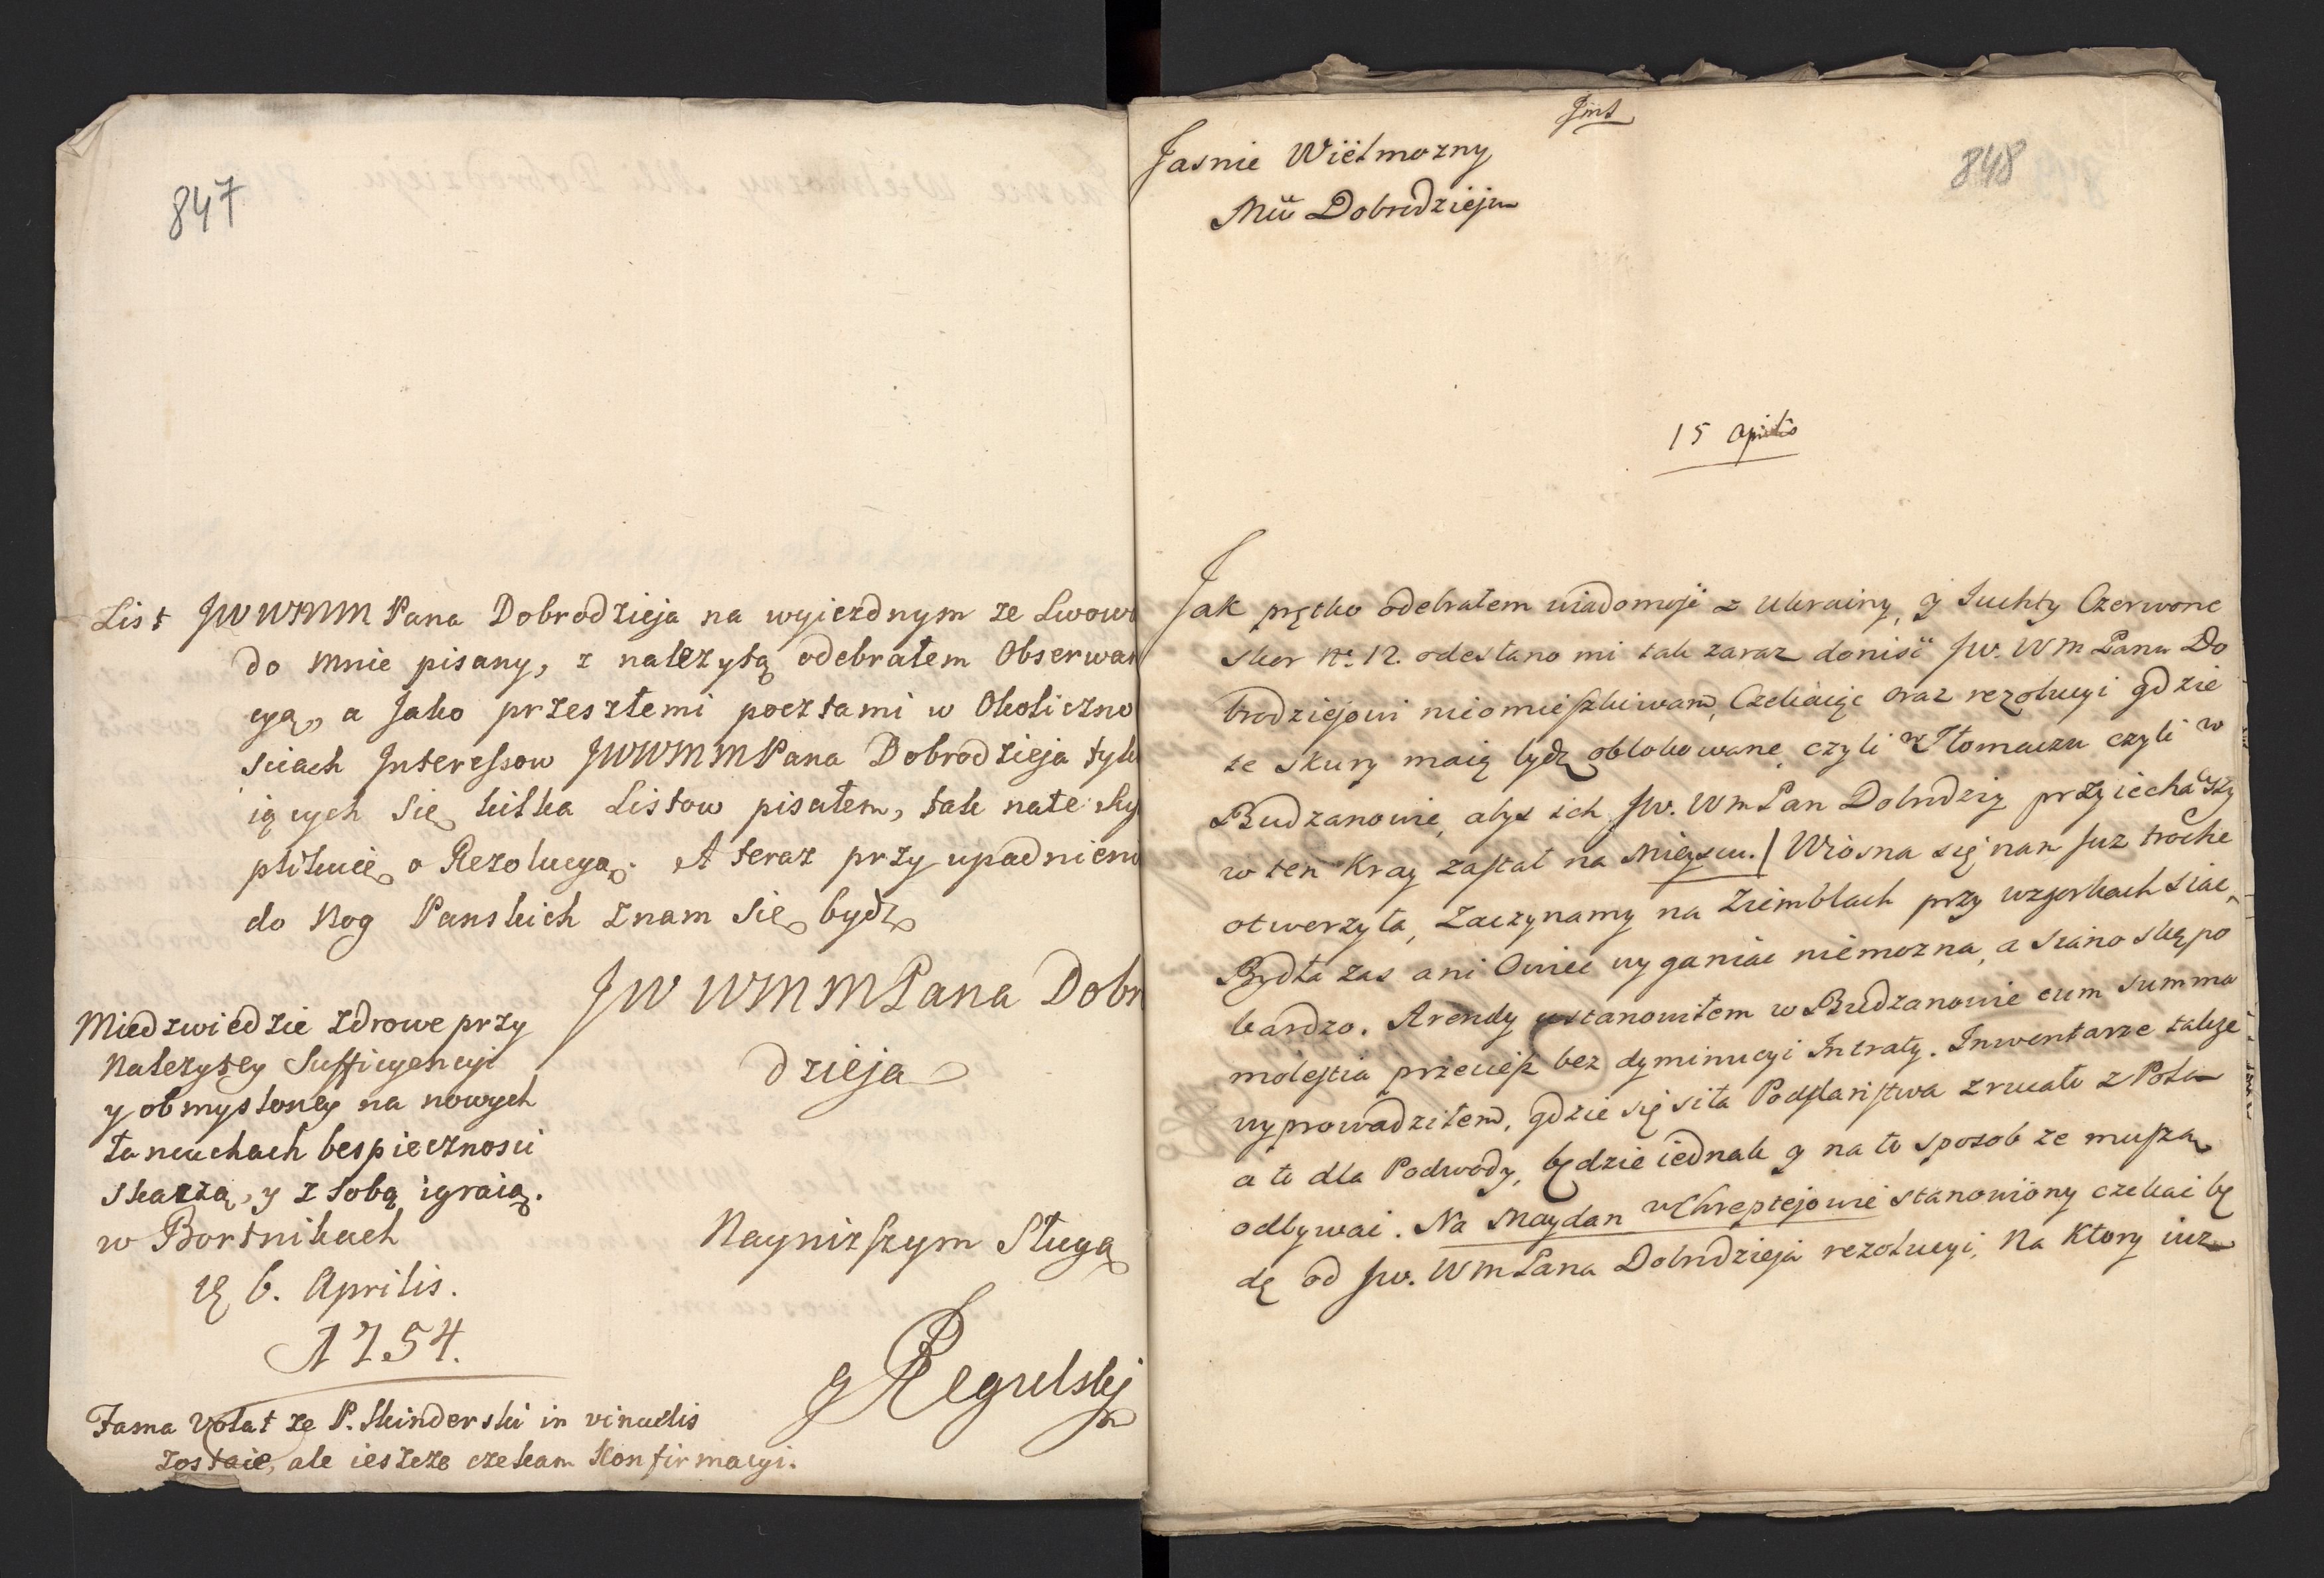 847
List JWWMM Pana Dobrodzieja na wyiezdnym ze Lwow
do mnie pisany, z należytą odebrałem Obserwan
cyą, a Jako przeszłemi pocztami w Okoliczno
sciach Interessow JWWMMPana Dobrodzieja tyl
iących Się kilka Listow pisałem, tak
plikuię o Rezolucyą. A teraz przy upadnieni
do Nog Panskich znam Się bydz
JW WMMPana Dobr
dzieja
Miedzwiedzie zdrowe przy
Nalezytey Sufficyencyi
y obmysloney na nowych
łancuchach bespiecznosci
skaczą, y z sobą igraią.
w Bortnikach
6. Aprilis.
1754.
Nayniższym Sługą
Regulskj
Fama volat ze P. Skinderski in vinculis
zostaie, ale ieszcze czekam Konfirmacyi.
848
Jasnie Wielmozny
Mci Dobrodzieju
15 Aprilis
Jak prętko odebrałem wiadomość z Ukrainy, y Juchty Czerwone
skor No. 12. odesłano mi tak zaraz donisć JW. WM Panu Do
brodziejowi nieomieszkiwam, Czekaiąc oraz rezolucyi gdzie
te skury maią bydź oblokowane, czyli w Tłomaczu czyli w
Budzanowie, abyś ich JW. WM Pan Dobrodziy przyiechawszy
w ten Kray zastał na Mieyscu. / Wiosna się nam Już troche
otworzyła, Zaczynamy na Ziemblach przy wzgorkach siac,
Bydła zas ani Owiec wyganiac niemozna, a siano skąpo
bardzo. Arendy ustanowiłem w Budzanowie cum summa
molestia przecięż bez dyminucyi Intraty. Inwentarze także
wyprowadziłem, gdzie się siła Poddaństwa zrucało z Pola
a to dla Podwody, będzie iednak y na to sposob ze muszą
odbywać. Na Maydan w Chreptejowie stanowiony czekać bę
dę od JW. WM Pana Dobrodzieja rezolucyi, Na Ktory iuz